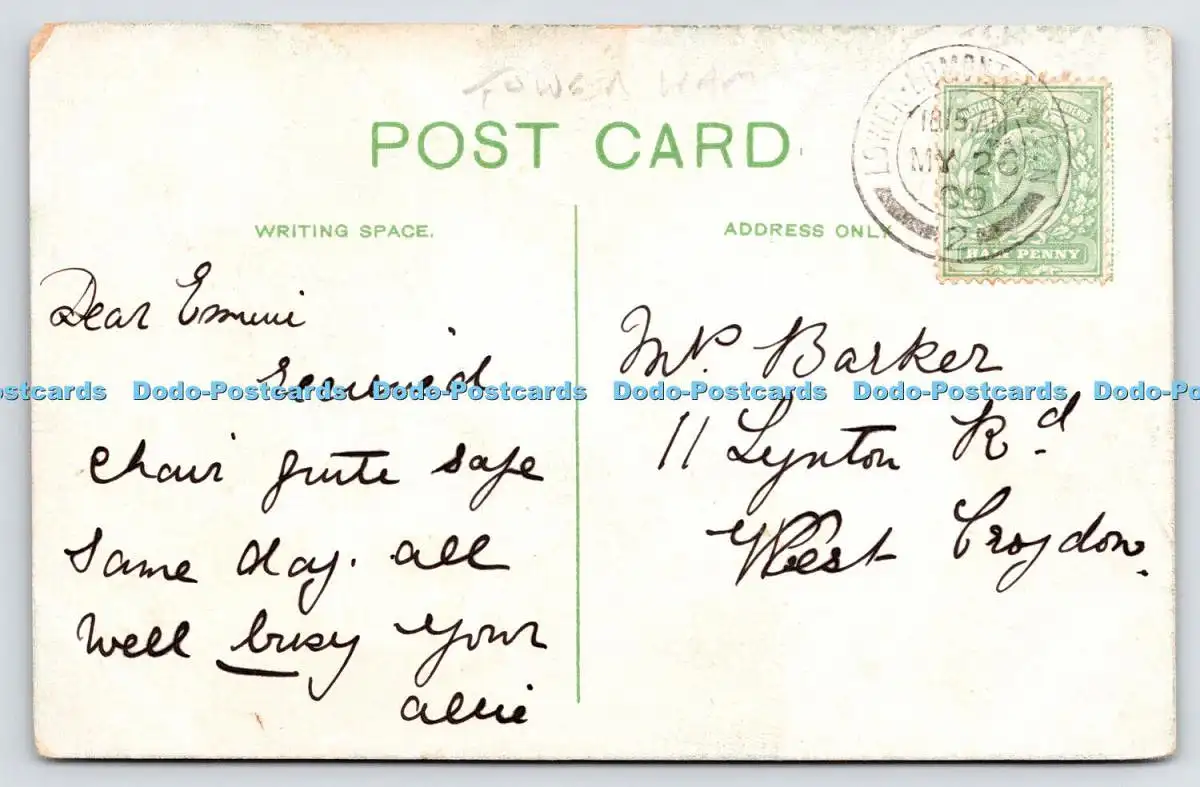 TOWER HAM
POST CARD
WRITING SPACE.
ADDRESS ONLY
LOWER EDMONTON
8 15 AM
MY 26
09
2
HALF PENNY
Dear Emmie
received
chair quite safe
same day. all
well busy your
allie
Mr. Barker
11 Lynton Rd.
West Croydon.
Dodo-Postcards Dodo-Postcards Dodo-Postcards Dodo-Postcards Dodo-Postcards